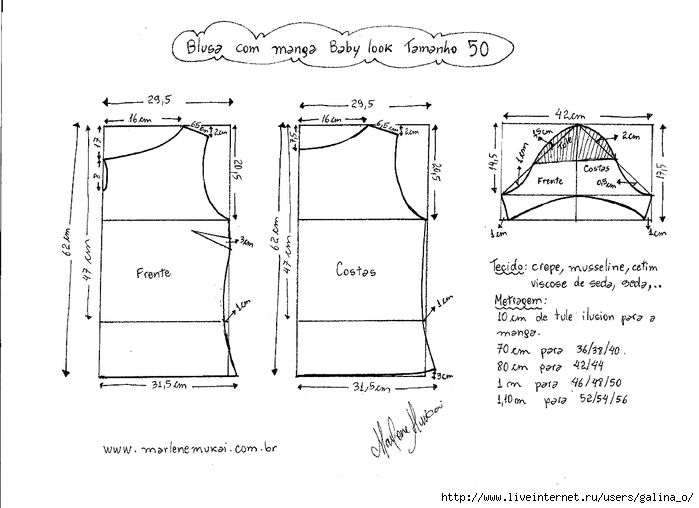 Blusa com manga Baby look Tamanho 50
29,5
16cm
6,5cm
2cm
17
8
20,5
62cm
47cm
3cm
Frente
1cm
31,5cm
29,5
16cm
6,5cm
2cm
7,5
20,5
62cm
47cm
Costas
1cm
3cm
31,5cm
42cm
1,5cm
Tule
2cm
1cm
14,5
17,5
Frente
Costas
0,5cm
1cm
1cm
Tecido: crepe, musseline, cetim
viscose de seda, seda,..
Metragem:
10 cm de tule ilusion para a
manga.
70 cm para 36/38/40.
80 cm para 42/44
1 m para 46/48/50
1,10m para 52/54/56
Marlene Mukai
www.marlenemukai.com.br
http://www.liveinternet.ru/users/galina_o/